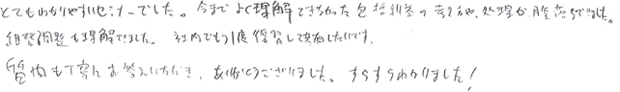 とてもわかりやすいセミナーでした。今までよく理解できなかった包括利益の考え方や、処理が腹落ちできました。
組替調整も理解できました。社内でもう1度復習して決出したいです。
質問も丁寧にお答えいただき、ありがとうございました。すらすらわかりました！